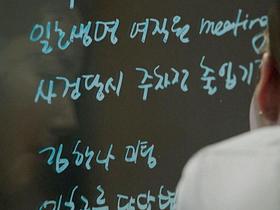 일산생명 여직원 meeting
사건당시 주차장 출입기
김한나 미팅